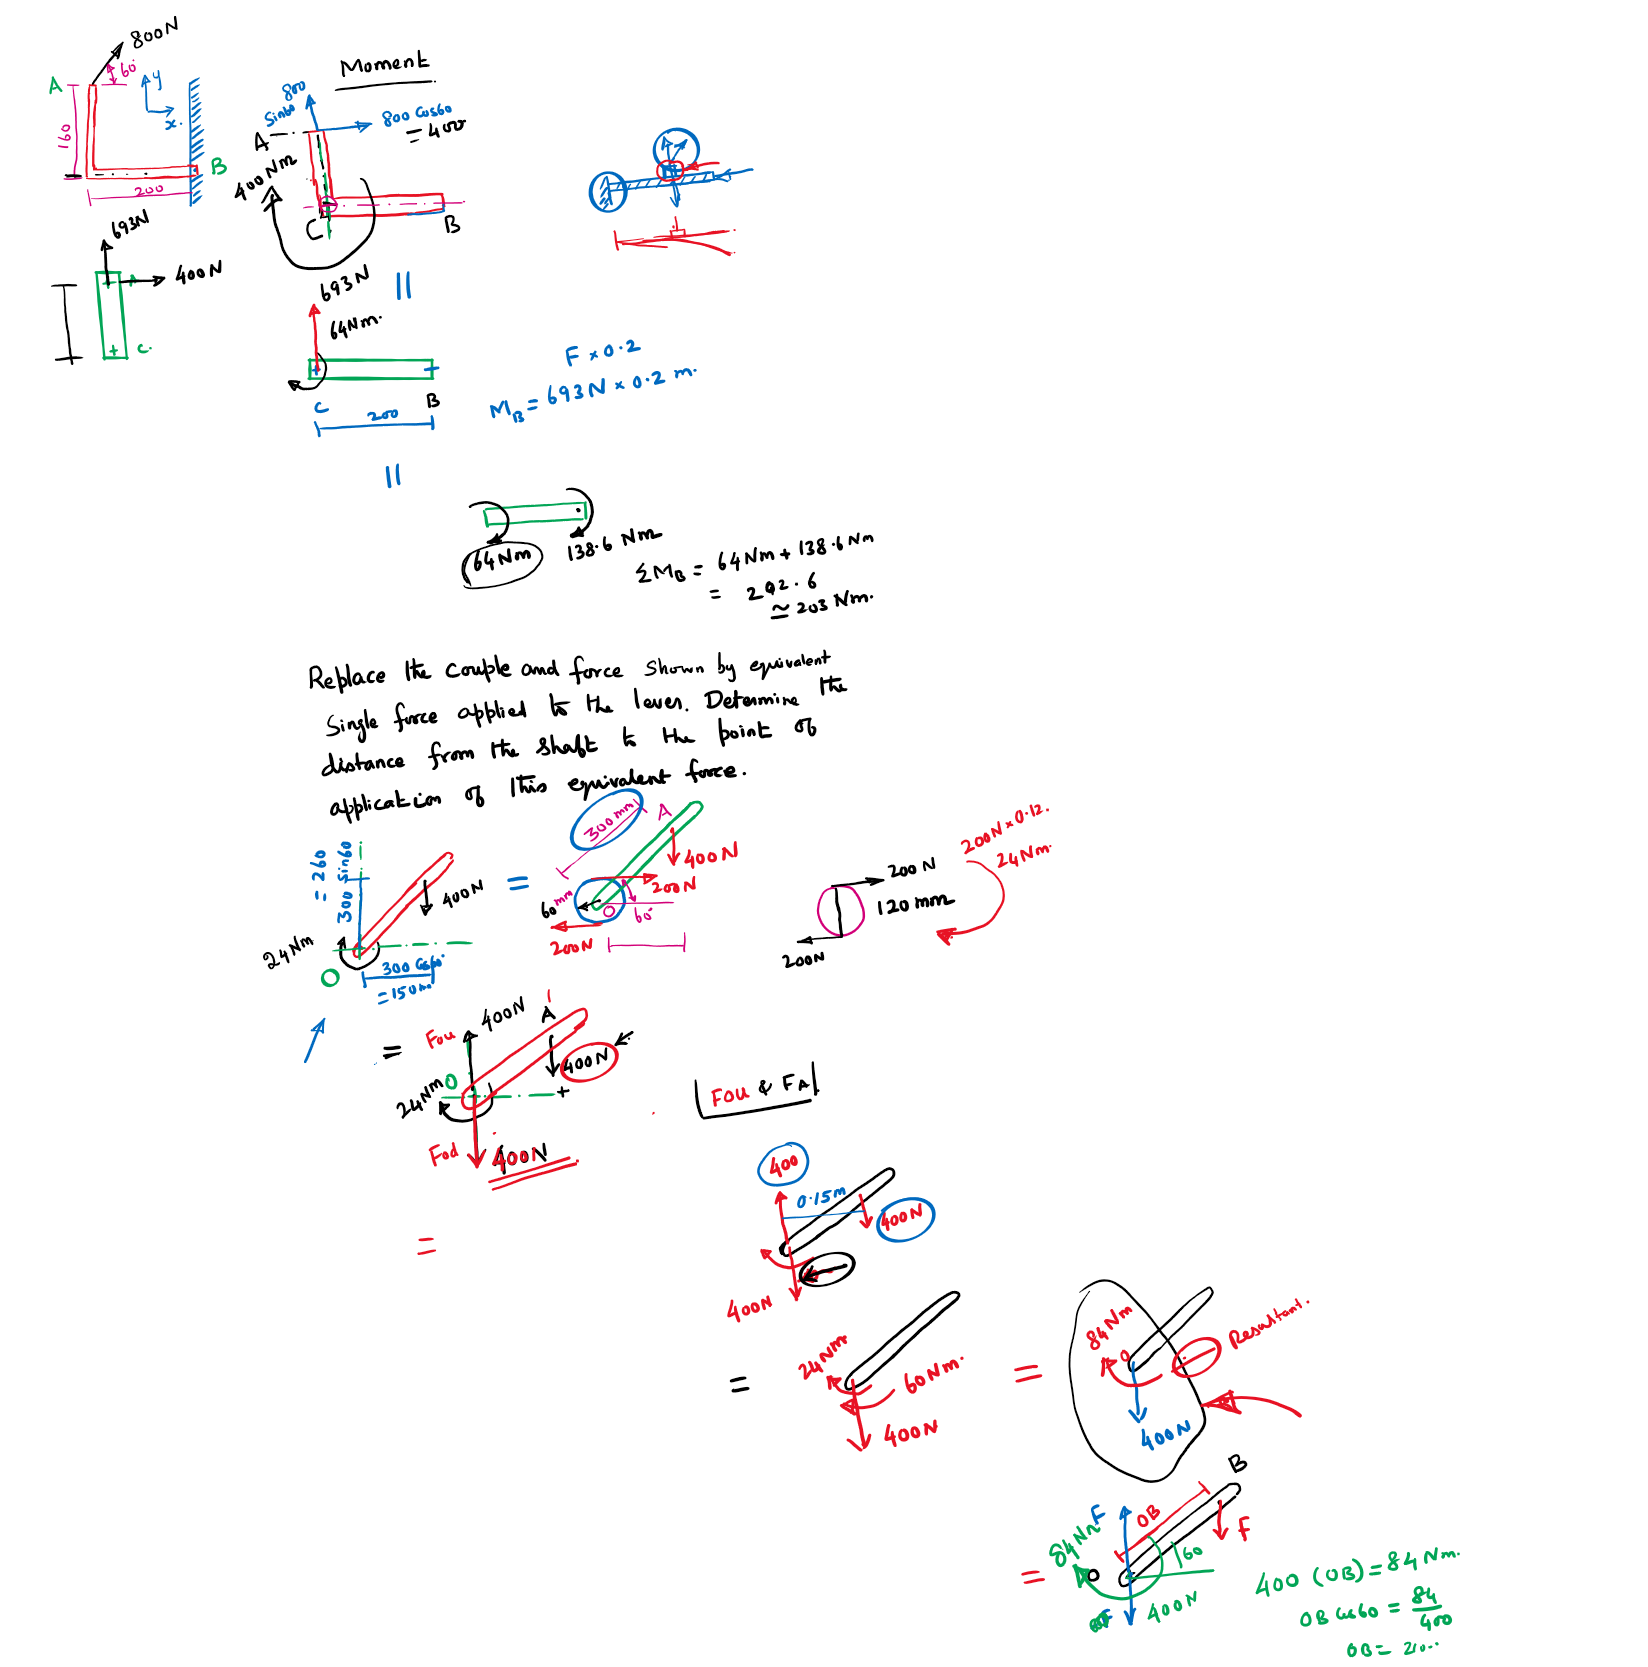 800N
60°
A
y
x.
160
B
200
Moment
800
Sin60
800 Cos60
= 400
A
400 Nm
C
B
693N
400N
A
C.
693 N
=
64Nm.
C
B
200
F × 0.2
M_B = 693N × 0.2 m.
=
64Nm
138.6 Nm
ΣM_B = 64Nm + 138.6 Nm
= 202.6
≃ 203 Nm.
Replace the couple and force shown by equivalent
Single force applied to the lever. Determine the
distance from the shaft to the point of
application of this equivalent force.
300 mm
A
400N
200N
60 mm
O
60°
200N
300 Sin60
= 260
400N
24Nm
O
300 Cos60°
= 150m
=
200 N
120 mm
200N
200N × 0.12.
24Nm.
=
Fou
400N
A'
400N
O
24Nm
+
Fod
400N
Fou & FA
=
400
0.15m
400N
400N
=
24Nm
60Nm.
400N
=
84Nm
O
Resultant.
400N
=
B
F
OB
84Nm
F
60
O
F
400N
400 (OB) = 84Nm.
OB Cos60 = 84/400
OB = 210..